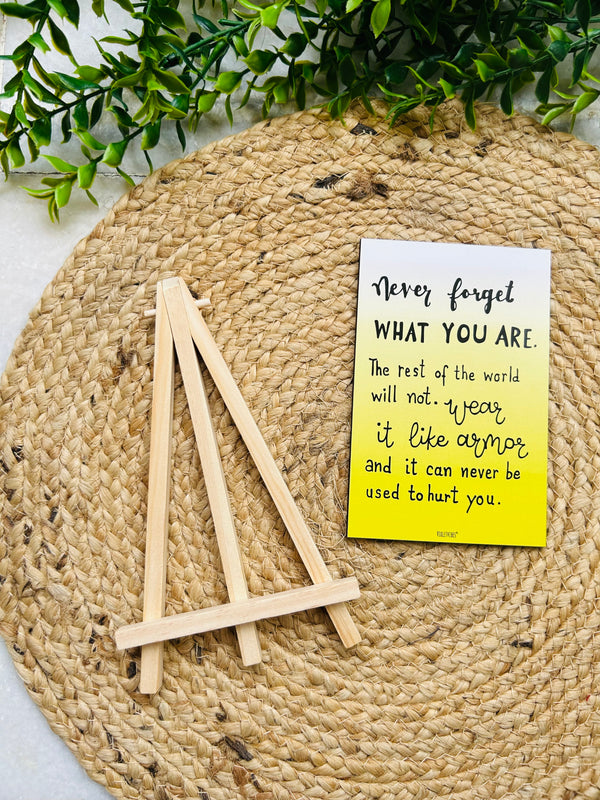 Never forget
WHAT YOU ARE.
The rest of the world
will not. wear
it like armor
and it can never be
used to hurt you.